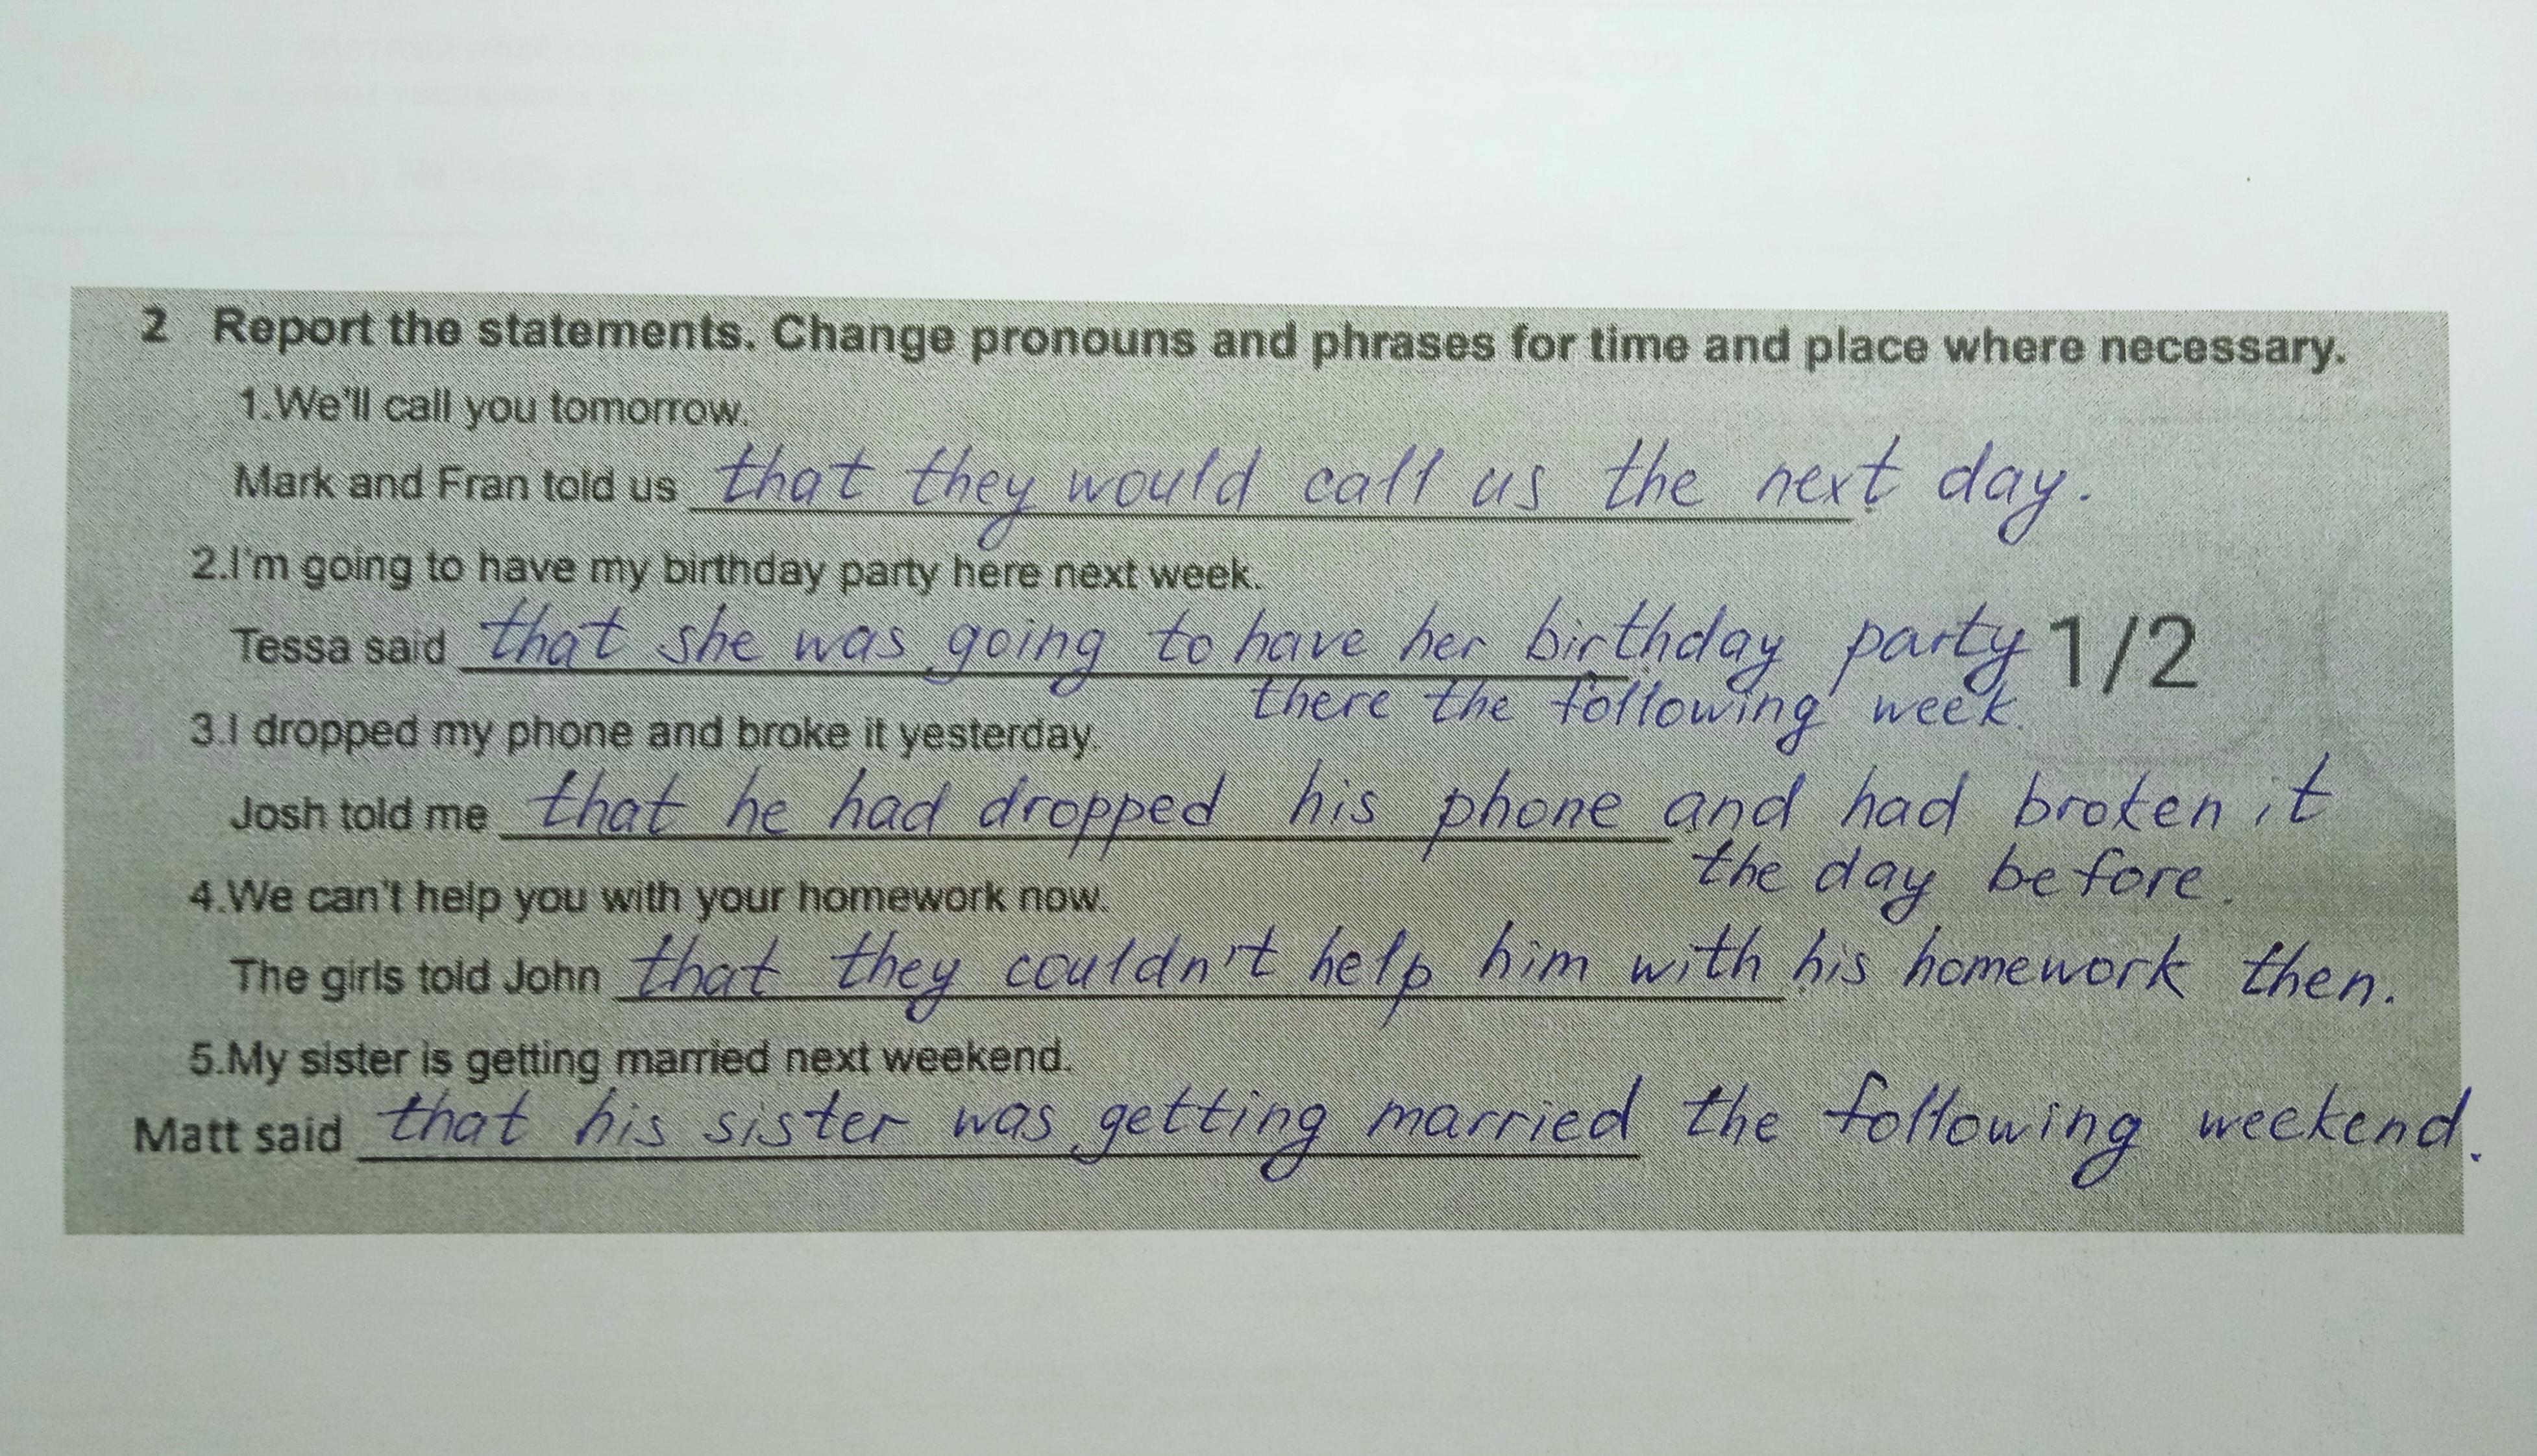 2 Report the statements. Change pronouns and phrases for time and place where necessary.
1.We'll call you tomorrow.
Mark and Fran told us that they would call us the next day.
2.I'm going to have my birthday party here next week.
Tessa said that she was going to have her birthday party 1/2
there the following week.
3.I dropped my phone and broke it yesterday.
Josh told me that he had dropped his phone and had broken it
the day before.
4.We can't help you with your homework now.
The girls told John that they couldn't help him with his homework then.
5.My sister is getting married next weekend.
Matt said that his sister was getting married the following weekend.